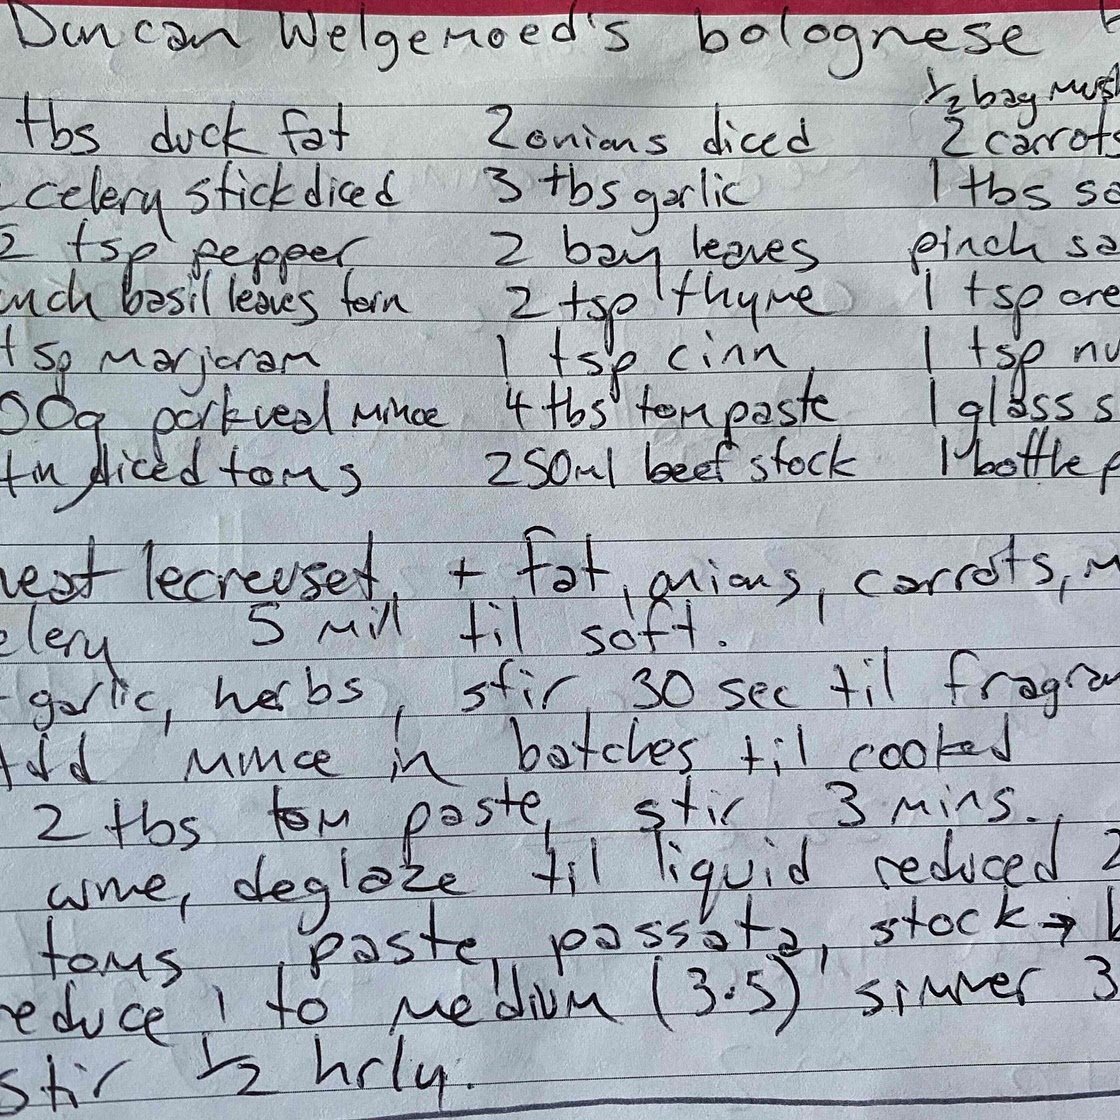 Duncan Welgemoed's bolognese
1/2 bag mush
tbs duck fat 2 onions diced 2 carrots
celery stick diced 3 tbs garlic 1 tbs
2 tsp pepper 2 bay leaves pinch
basil leaves torn 2 tsp thyme 1 tsp
tsp marjoram 1 tsp cinn 1 tsp
00g pork veal mince 4 tbs tom paste 1 glass
tin diced toms 250ml beef stock 1 bottle
heat lecreuset, + fat, onions, carrots,
elery 5 min til soft.
garlic, herbs, stir 30 sec til fragran
Add mince in batches til cooked
2 tbs tom paste, stir 3 mins.
wine, deglaze til liquid reduced
toms, paste, passata, stock →
reduce to medium (3.5) simmer 3
stir 1/2 hrly.